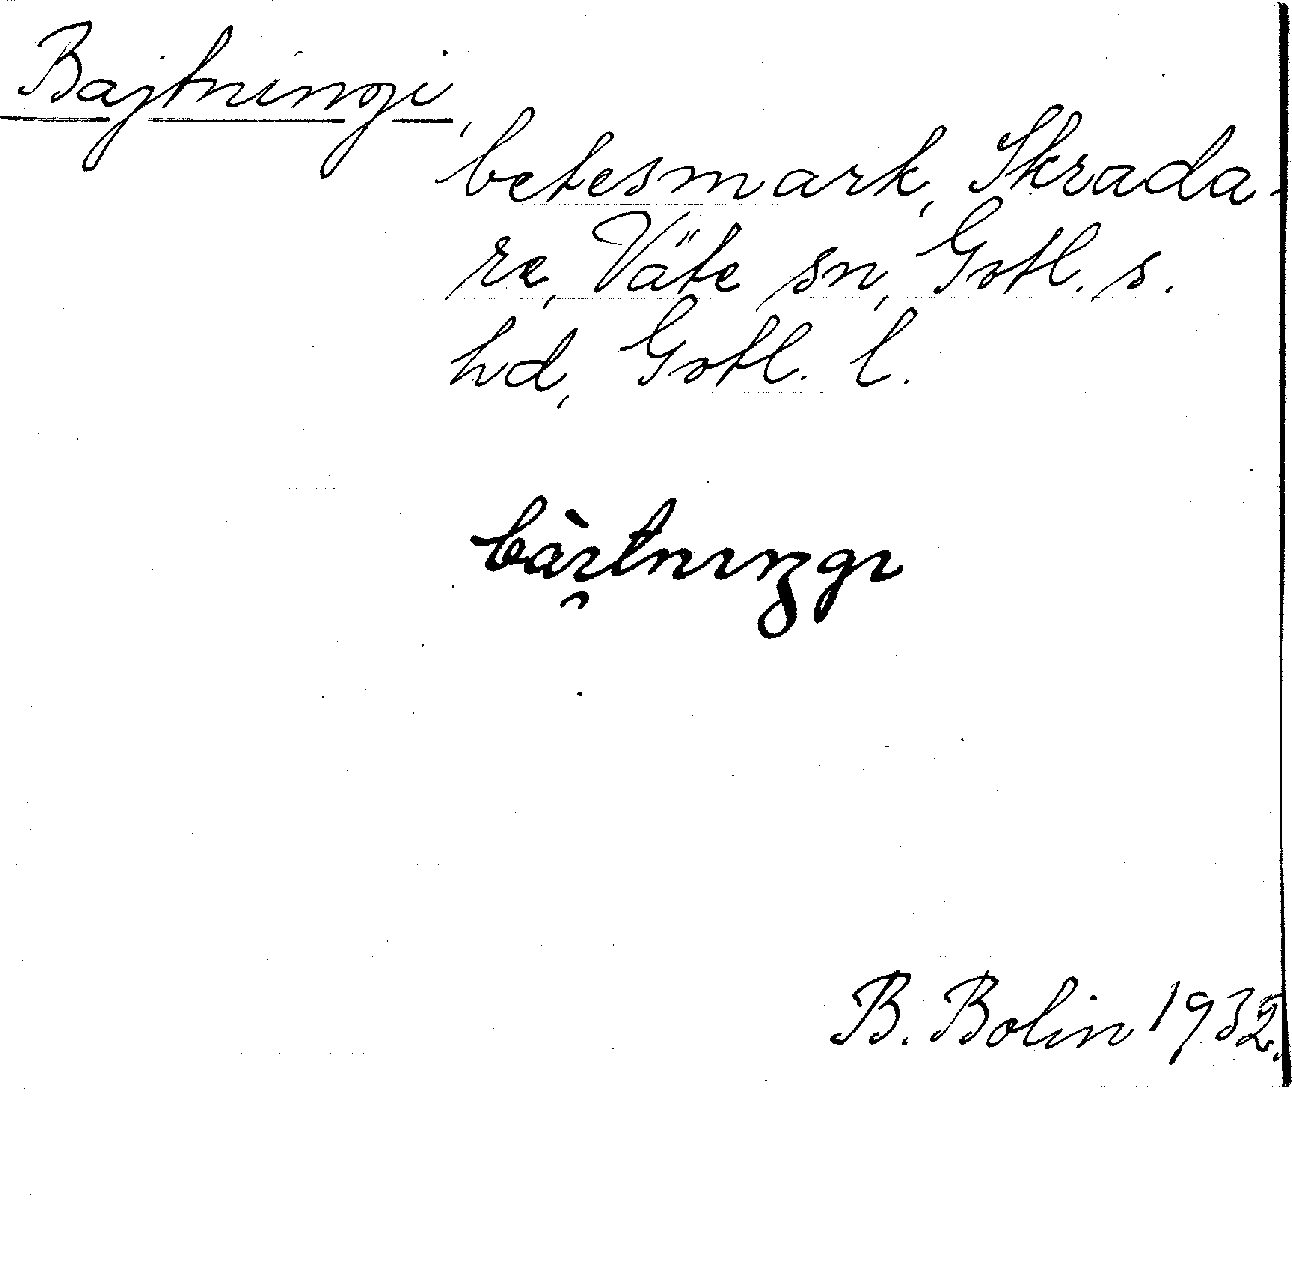 Bajtningi,
betesmark, Skrada-
re, Väte sn, Gotl. s.
hd, Gotl. l.
bàı̯tnıŋgı
B. Bolin 1932.